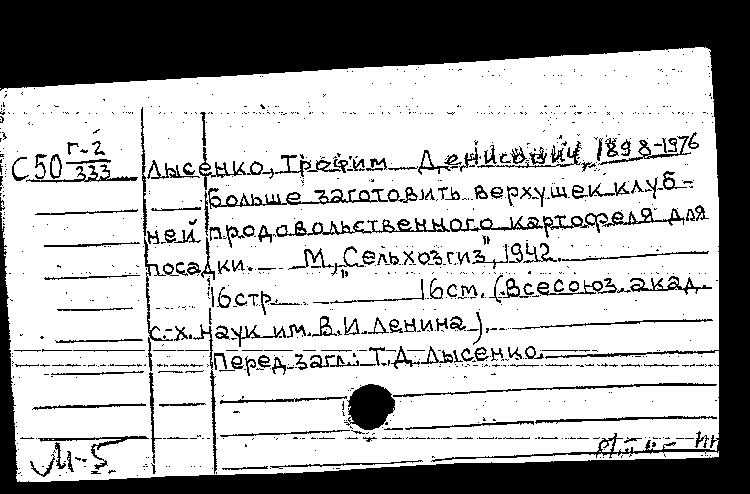 С50 Г-2/333
Лысенко, Трофим Денисович, 1898-1976
больше заготовить верхушек клуб-
ней продовольственного картофеля для
посадки. М., „Сельхозгиз", 1942.
16стр. 16см. (Всесоюз. акад.
с.-х. наук им. В.И. Ленина).
Перед загл.: Т.Д. Лысенко.
М-5